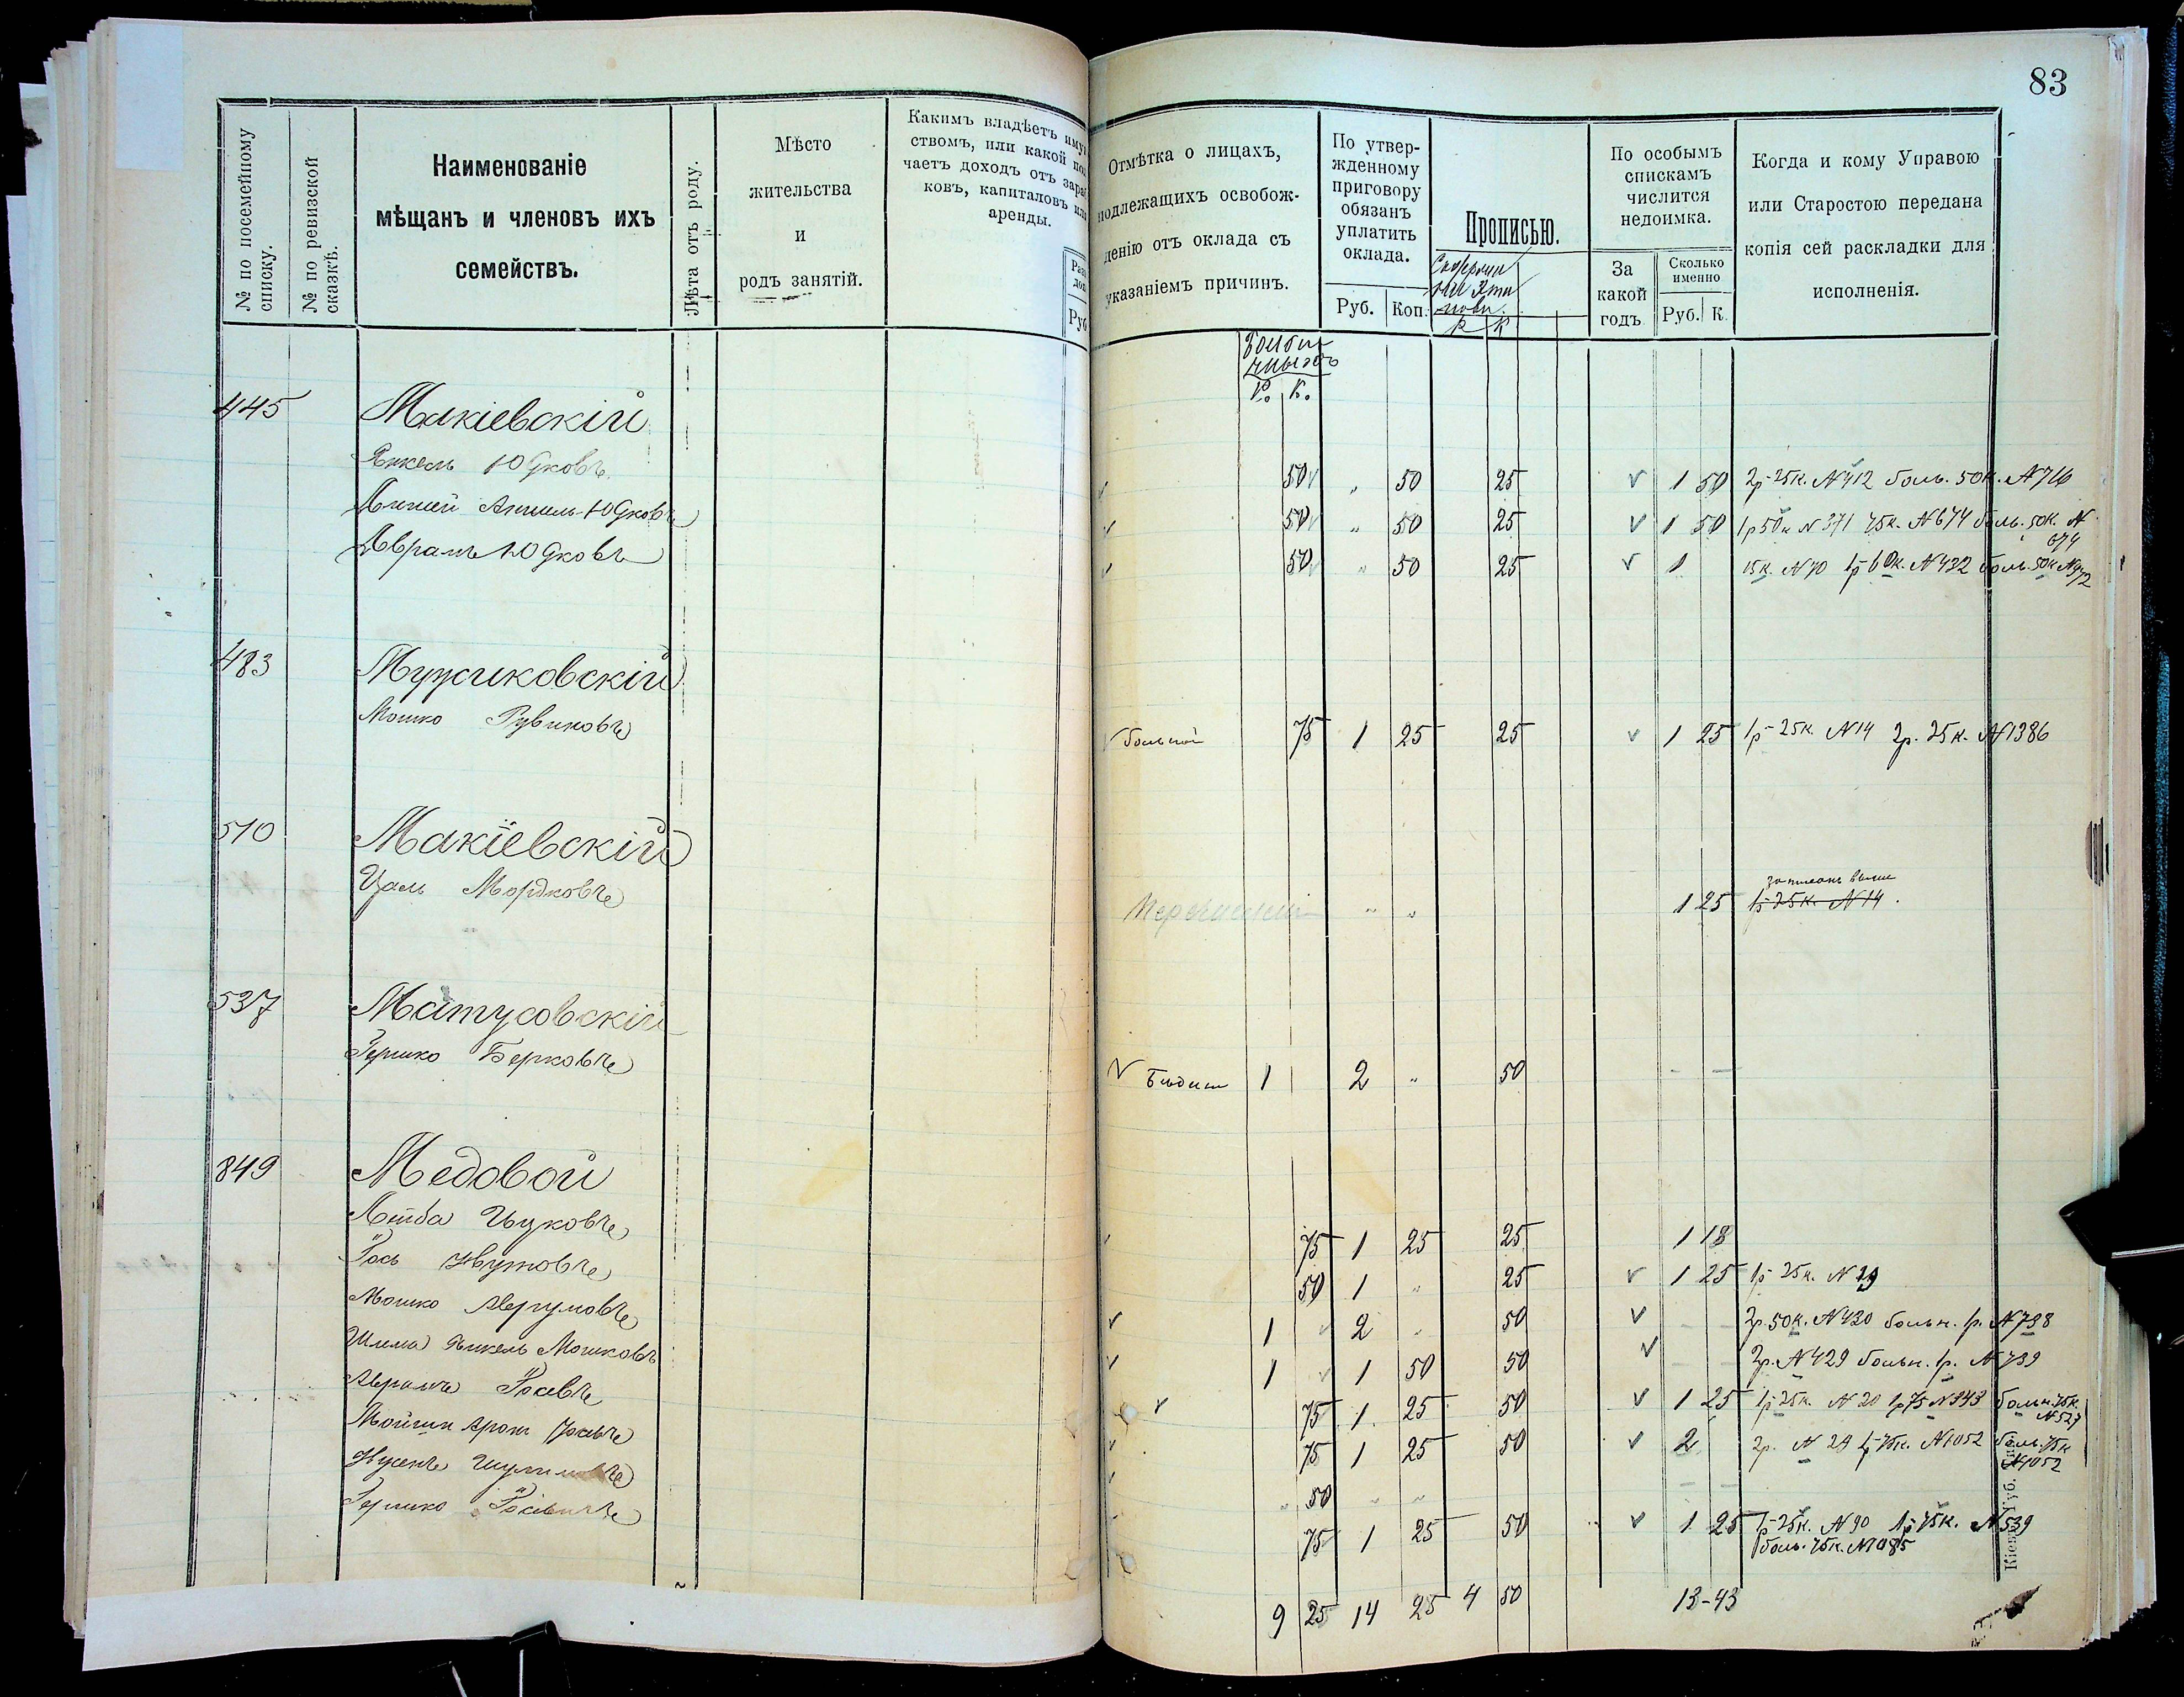 83
№ по посемейному списку.
№ по ревизской сказкѣ.
Наименованіе
мѣщанъ и членовъ ихъ
семействъ.
Лѣта отъ роду.
Мѣсто
жительства
и
родъ занятій.
Какимъ владѣетъ иму
ствомъ, или какой по
чаетъ доходъ отъ зара
ковъ, капиталовъ или
аренды.
Руб
Отмѣтка о лицахъ,
подлежащихъ освобож-
денію отъ оклада съ
указаніемъ причинъ.
По утвер-
жденному
приговору
обязанъ
уплатить
оклада.
Руб. Коп.
Прописью.
Р К
По особымъ
спискамъ
числится
недоимка.
За
какой
годъ
Сколько
именно
Руб. К.
Когда и кому Управою
или Старостою передана
копія сей раскладки для
исполненія.
Р. К.
445 Макіевскій
Янкель Юдковъ 50 " 50 25 1 50 2р 25к. №412 боль. 50к. №716
Аншель-Юдковъ 50 " 50 25 1 50 1р 50к №371 75к. №674 боль. 50к. № 674
Аврамъ Юдковъ 50 " 50 25 1 15к. №70 1р 60к. №432 боль. 50к №972
483 Мужиковскій
Мошко Рувиновъ больной 75 1 25 25 1 25 1р 25к. №14 2р. 25к. №1386
510 Макіевскій
Цаль Мордковъ " " 1 25 1р 25к. №14.
537 Матусовскій
Гершко Берковъ 1 2 " 50 - -
849 Медовой
Лейба Ицковъ 75 1 25 25 1 18
Іось Нутовъ 50 1 " 25 1 25 1р 25к. №29
Мошко 1 2 " 50 - - 2р. 50к. №430 больн. 1р. №738
Шима Янкель Мошковъ 1 1 50 50 - - 2р. №429 больн. 1р. №739
Аврамъ Іосевъ 75 1 25 50 1 25 1р 25к. №20 1р 75 №343 больн. 75к. №527
Аронъ Іосевъ 75 1 25 50 2 2р. №24 1р 75к. №1052 боль. 75к №1052
Нусенъ " 50 " " - -
Гершко 75 1 25 50 1 25 1р 25к. №90 1р 75к. №539
боль. 75к. №1085
9 25 14 25 4 50 13-43
Кіев. Губ.